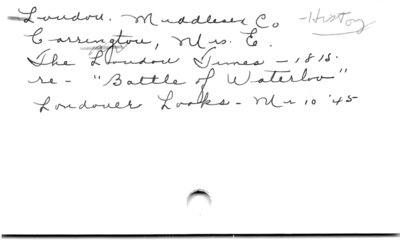 London. Middlesex Co - History
Carrington, Mrs. E.
The London Times - 1815.
re - "Battle of Waterloo"
Londoner Looks - Mr 10 '45